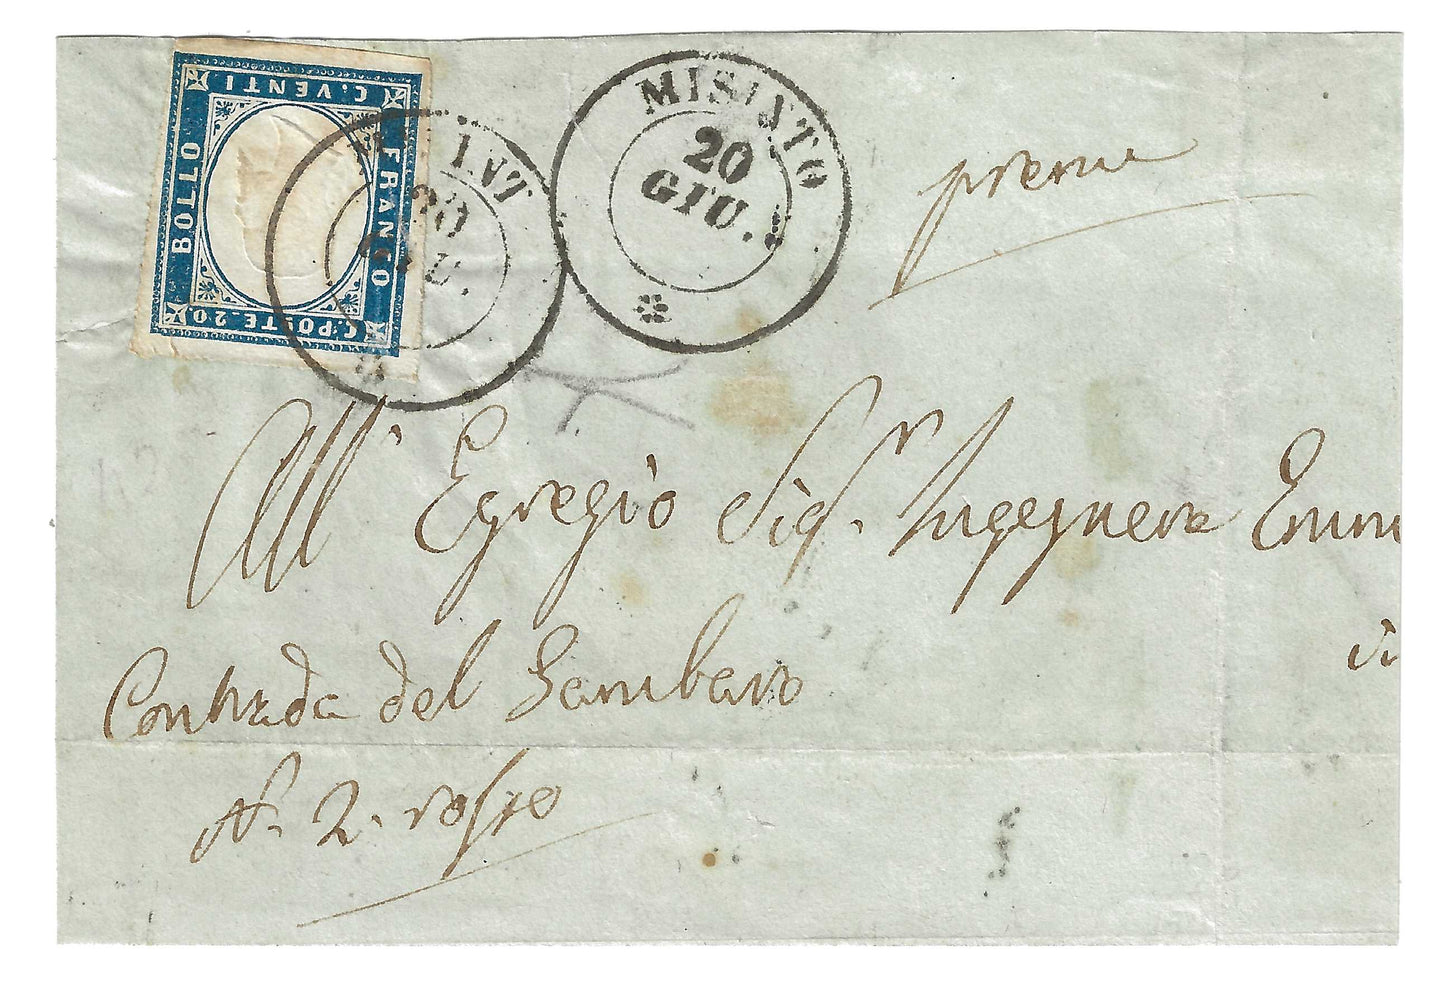 C. VENTI
BOLLO
FRANCO
C. POSTE. 20.
MISINT
20
GIU.
MISINTO
20
GIU.
preme
All' Egregio Sigr. Ingegnere Emm
in
Contrada del Gambaro
N. 2. rosso